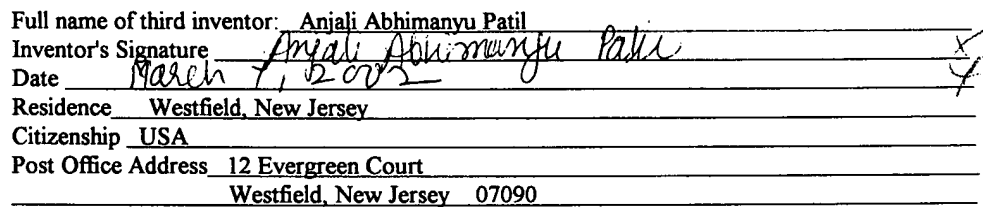 Full name of third inventor: Anjali Abhimanyu Patil
Inventor's Signature Anjali Abhimanyu Patil X
Date March 7, 2002 X
Residence Westfield, New Jersey
Citizenship USA
Post Office Address 12 Evergreen Court
Westfield, New Jersey 07090